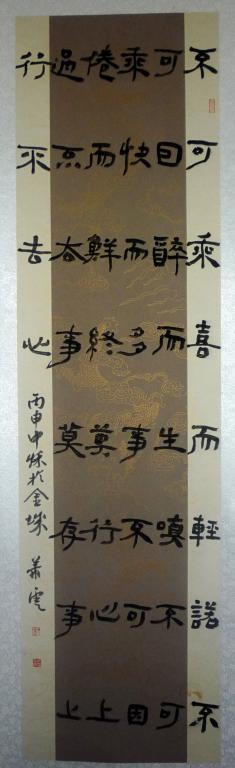 不可乘喜而輕諾不
可因醉而生嗔不可
乘快而多事不可因
倦而鮮終莫行心上
過不去事莫存事上
行不去心
丙申中秋於金城 蕭雲